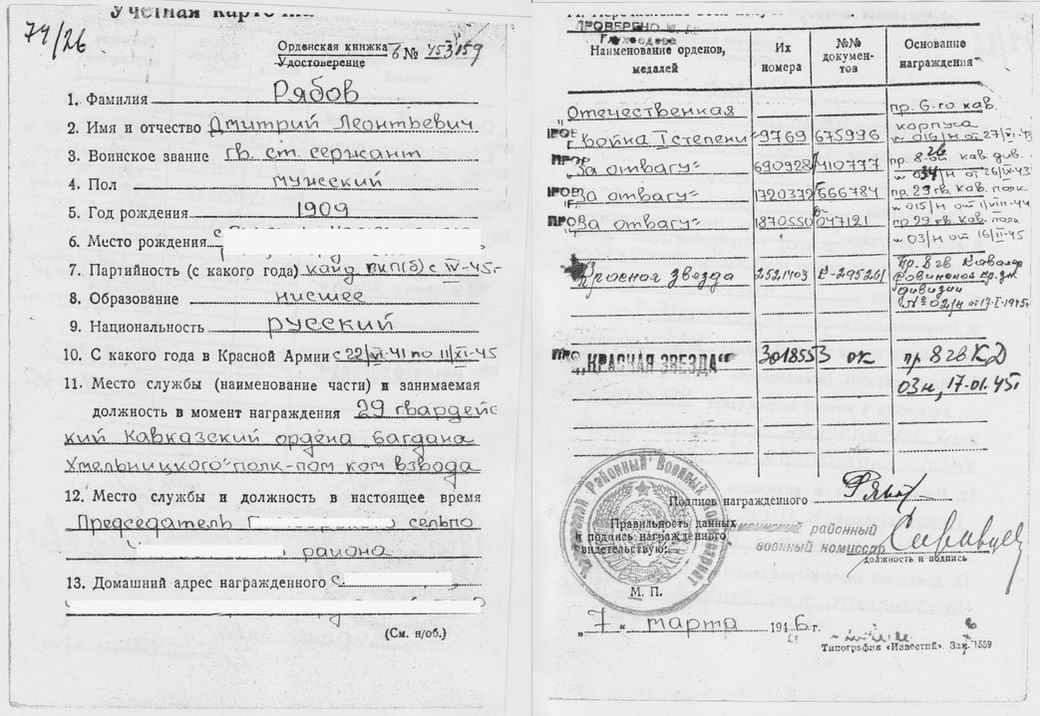 Учетная карточка
74/26
Орденская книжка Б № 453159
Удостоверение
1. Фамилия Рябов
2. Имя и отчество Дмитрий Леонтьевич
3. Воинское звание гв. ст. сержант
4. Пол мужский
5. Год рождения 1909
6. Место рождения
7. Партийность (с какого года) канд ВКП(б) с IV-45г
8. Образование нисшее
9. Национальность русский
10. С какого года в Красной Армии с 22/VI-41 по 11/XI-45
11. Место службы (наименование части) и занимаемая
должность в момент награждения 29 гвардейс
кий Кавказский ордена „Багдана
Хмельницкого" полк-пом ком взвода
12. Место службы и должность в настоящее время
Председатель Г сельпо
района
13. Домашний адрес награжденного с.
(См. н/об.)
ПРОВЕРЕНО
Наименование орденов, медалей
Их номера
№№ документов
Основание награждения
„Отечественная
война I степени" 9769 675996 пр. 6-го кав. корпуса
№ 016/н от 27/VI-43
„За отвагу" 690928 110777 пр. 8-ой гв кав. див.
№ 034/н от 26/IX-43
„За отвагу" 1720372 666784 пр. 29 гв. кав. полк
№ 015/н от 1/VIII-44
„За отвагу" 1870550 047121 пр 29 гв. кав. полк
№ 03/н от 16/II-45
Красная звезда 2521403 пр. 8 гв
дивизии
№ 02/н от 17-I-1945г
„КРАСНАЯ ЗВЕЗДА" 3018553 ок пр 8 гв К Д
03н, 17.01.45г
Подпись награжденного
Правильность данных
и подпись награжденного
свидетельствую:
районный
военный комиссар
должность и подпись
М. П.
„7" марта 1946 г.
Типография «Известий». Зак. 1559